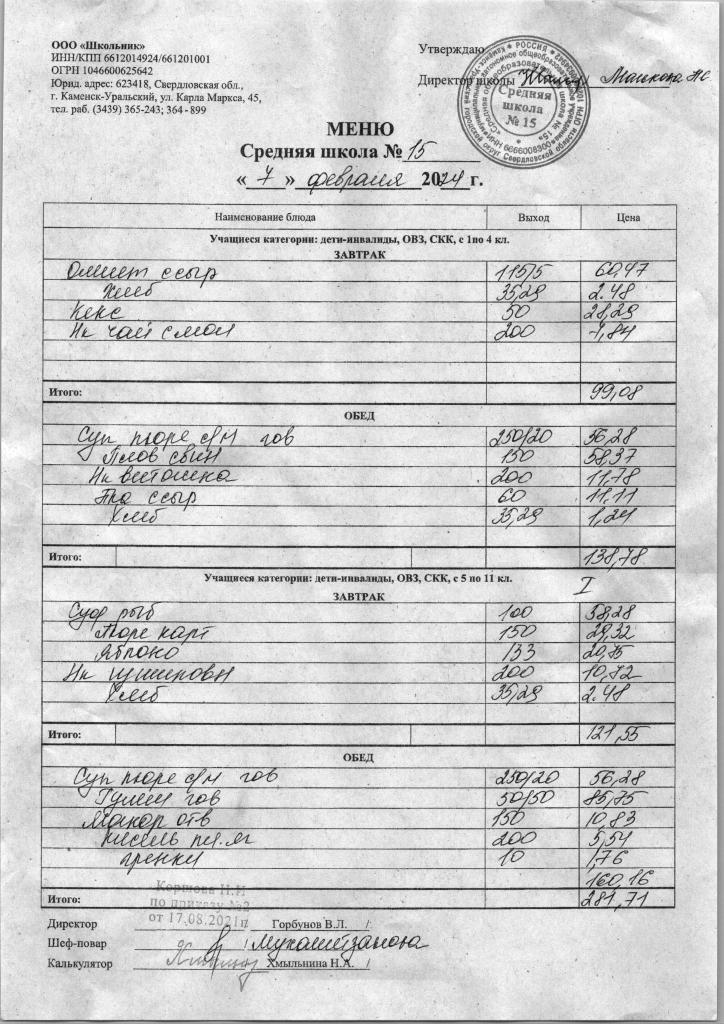 ООО «Школьник»
ИНН/КПП 6612014924/661201001
ОГРН 1046600625642
Юрид. адрес: 623418, Свердловская обл.,
г. Каменск-Уральский, ул. Карла Маркса, 45,
тел. раб. (3439) 365-243; 364-899
Утверждаю
Директор школы
Средняя
школа
№ 15
МЕНЮ
Средняя школа № 15
« 7 » февраля 2024 г.
Наименование блюда Выход Цена
Учащиеся категории: дети-инвалиды, ОВЗ, СКК, с 1по 4 кл.
ЗАВТРАК
Омлет с сыр 115/5 60,47
Хлеб 35,29 2.48
Кекс 50 28,29
Нк чай с мол 200 7,84
Итого: 99,08
ОБЕД
Суп пюре гов 250/20 56,28
Плов свин 150 58,37
Нк 200 11,78
с сыр 60 11,11
Хлеб 35,29 1,24
Итого: 138,78
Учащиеся категории: дети-инвалиды, ОВЗ, СКК, с 5 по 11 кл. I
ЗАВТРАК
Суф рыб 100 58,28
Пюре карт 150 29,32
Яблоко 133 20,75
Нк 200 10,72
Хлеб 35,29 2.48
Итого: 121,55
ОБЕД
Суп пюре гов 250/20 56,28
Гуляш гов 50/50 85,75
Макар отв 150 10,83
кисель 200 5,54
гренки 10 1,76
160,16
Итого: 281,71
Коршова Н.И
по приказу №2
от 17.08.2021г
Директор / Горбунов В.Л. /
Шеф-повар /
Калькулятор Хмыльнина Н.А. /